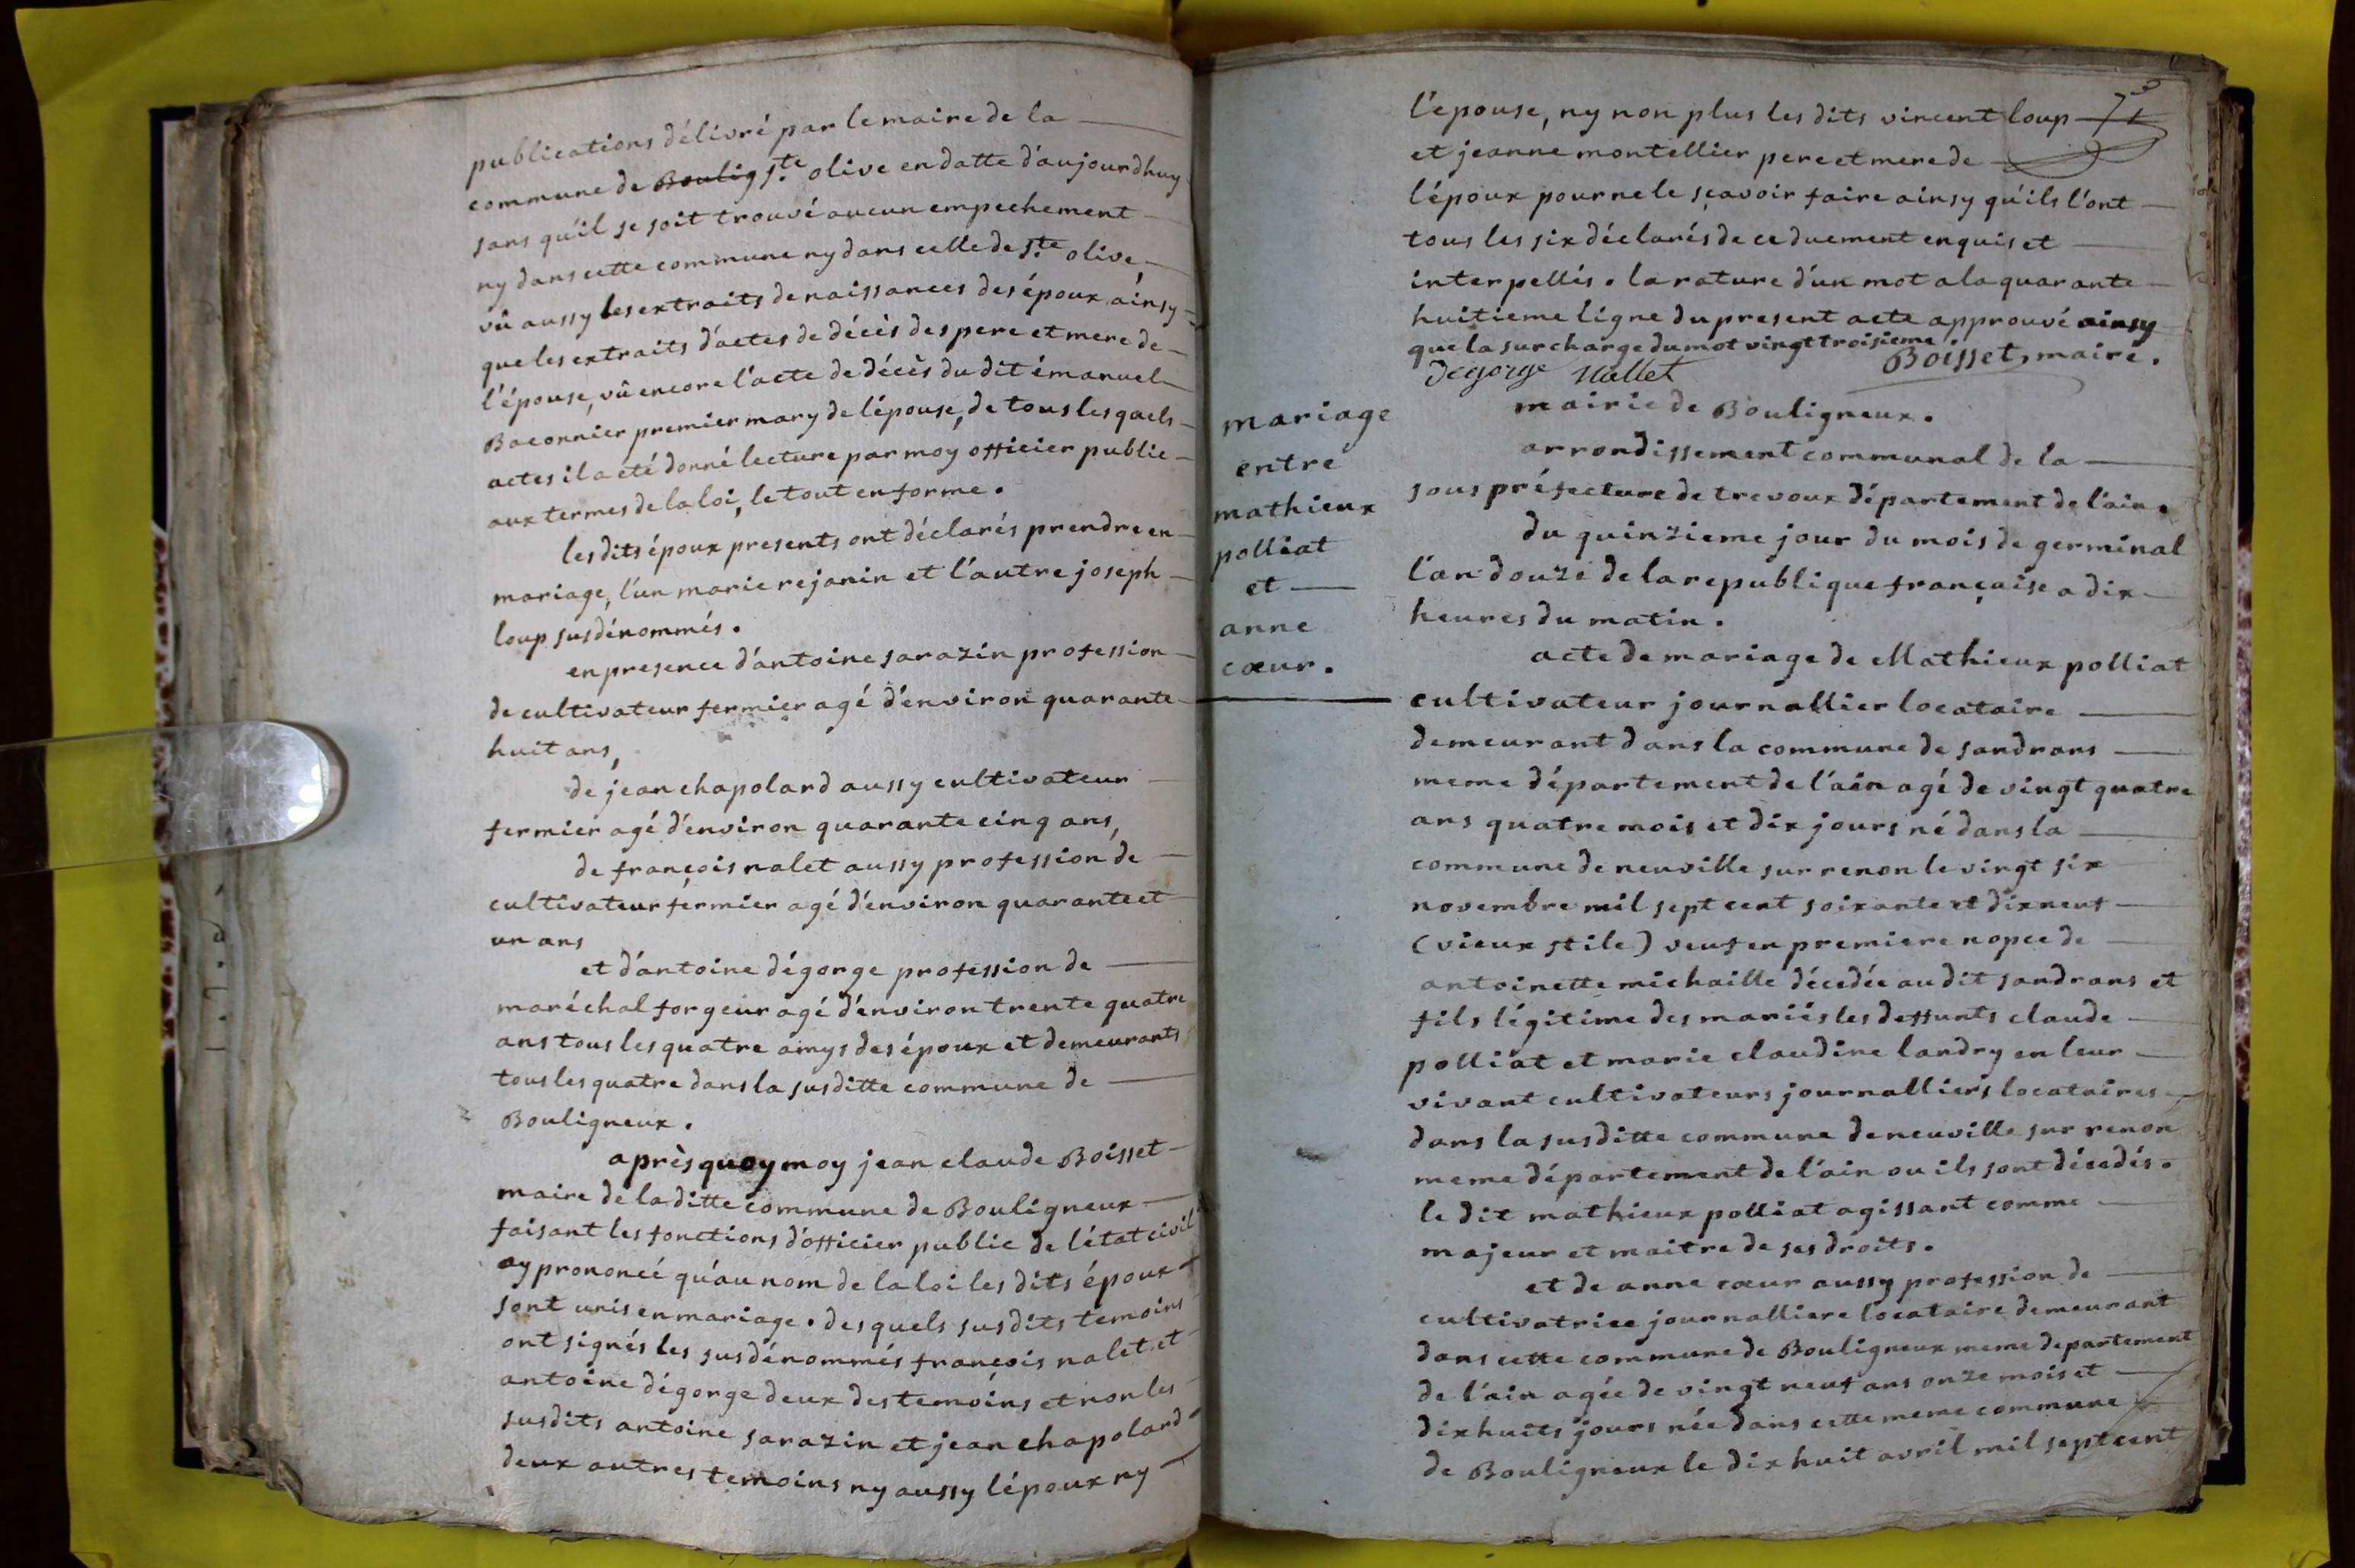 publications délivré par le maire de la
commune deBoulig S.te olive en datte d'aujourdhuy
sans qu'il se soit trouvé aucun empechement
ny dans cette commune ny dans celle de S.te olive,
vû aussy les extraits de naissances des époux ainsy
que les extraits d'actes de décès des pere et mere de
l'épouse, vû encore l'acte de décès du dit émanuel
Baconnier premier mary de l'épouse, de tous lesquels
actes il a eté donné lecture par moy officier public
aux termes de la loi, le tout en forme.
les dits époux presents ont déclarés prendre en
mariage, l'un marie rejanin et l'autre joseph
loup susdénommés.
en presence d'antoine sarazin profession
de cultivateur fermier agé d'environ quarante
huit ans,
de jean chapolard aussy cultivateur
fermier agé d'environ quarante cinq ans,
de françois nalet aussy profession de
cultivateur fermier agé d'environ quarante et
un ans
et d'antoine dégorge profession de
maréchal forgeur agé d'environ trente quatre
ans tous les quatre amys des époux et demeurants
tous les quatre dans la susditte commune de
Bouligneux.
après quoy moy jean claude Boisset
maire de la ditte commune de Bouligneux
faisant les fonctions d'officier public de l'état civil
ay prononcé qu'au nom de la loi les dits époux
sont unis en mariage. des quels susdits temoins
ont signés les susdénommés françois nalet et
antoine dégorge deux des temoins et non les
susdits antoine sarazin et jean chapolard
deux autres temoins ny aussy l'époux ny
l'epouse, ny non plus les dits vincent loup
et jeanne montellier pere et mere de
l'époux pour ne le sçavoir faire ainsy qu'ils l'ont
tous les six déclarés de ce duement enquis et
interpellés. la rature d'un mot a la quarante
huitieme ligne du present acte approuvé ainsy
que la surcharge du mot vingt troisieme
Degorge Nallet Boisset, maire.
mairie de Bouligneux.
arrondissement communal de la
sous préfecture de trevoux département de l'ain.
du quinzieme jour du mois de germinal
l'an douze de la republique française a dix
heures du matin.
mariage
entre
mathieux
polliat
et
anne
cœur.
acte de mariage de Mathieux polliat
cultivateur journallier locataire
demeurant dans la commune de sandrans
meme département de l'ain agé de vingt quatre
ans quatre mois et dix jours né dans la
commune de neuville sur renon le vingt six
novembre mil sept cent soixante et dix neuf
(vieux stile) veuf en premiere nopce de
antoinette michaille décedée au dit sandrans et
fils légitime des mariés les deffunts claude
polliat et marie claudine landry en leur
vivant cultivateurs journalliers locataires
dans la susditte commune de neuville sur renon
meme département de l'ain ou ils sont décedés.
le dit mathieux polliat agissant comme
majeur et maitre de ses droits.
et de anne cœur aussy profession de
cultivatrice journalliere locataire demeurant
dans cette commune de Bouligneux meme departement
de l'ain agée de vingt neuf ans onze mois et
dix huits jours née dans cette meme commune
de Bouligneux le dix huit avril mil sept cent